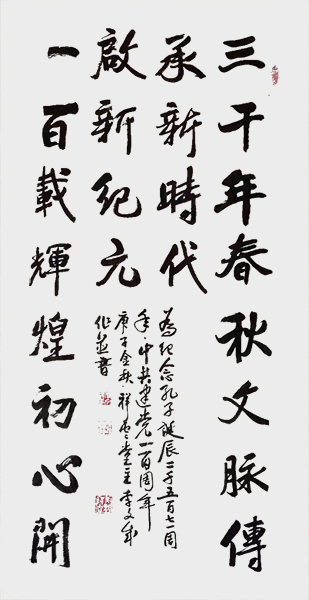 三千年春秋文脉傳
承新時代
一百載輝煌初心開
啟新紀元
為紀念孔子誕辰二千五百七一周
年中共建党一百周年
庚子金秋祥堂主李文
作並書